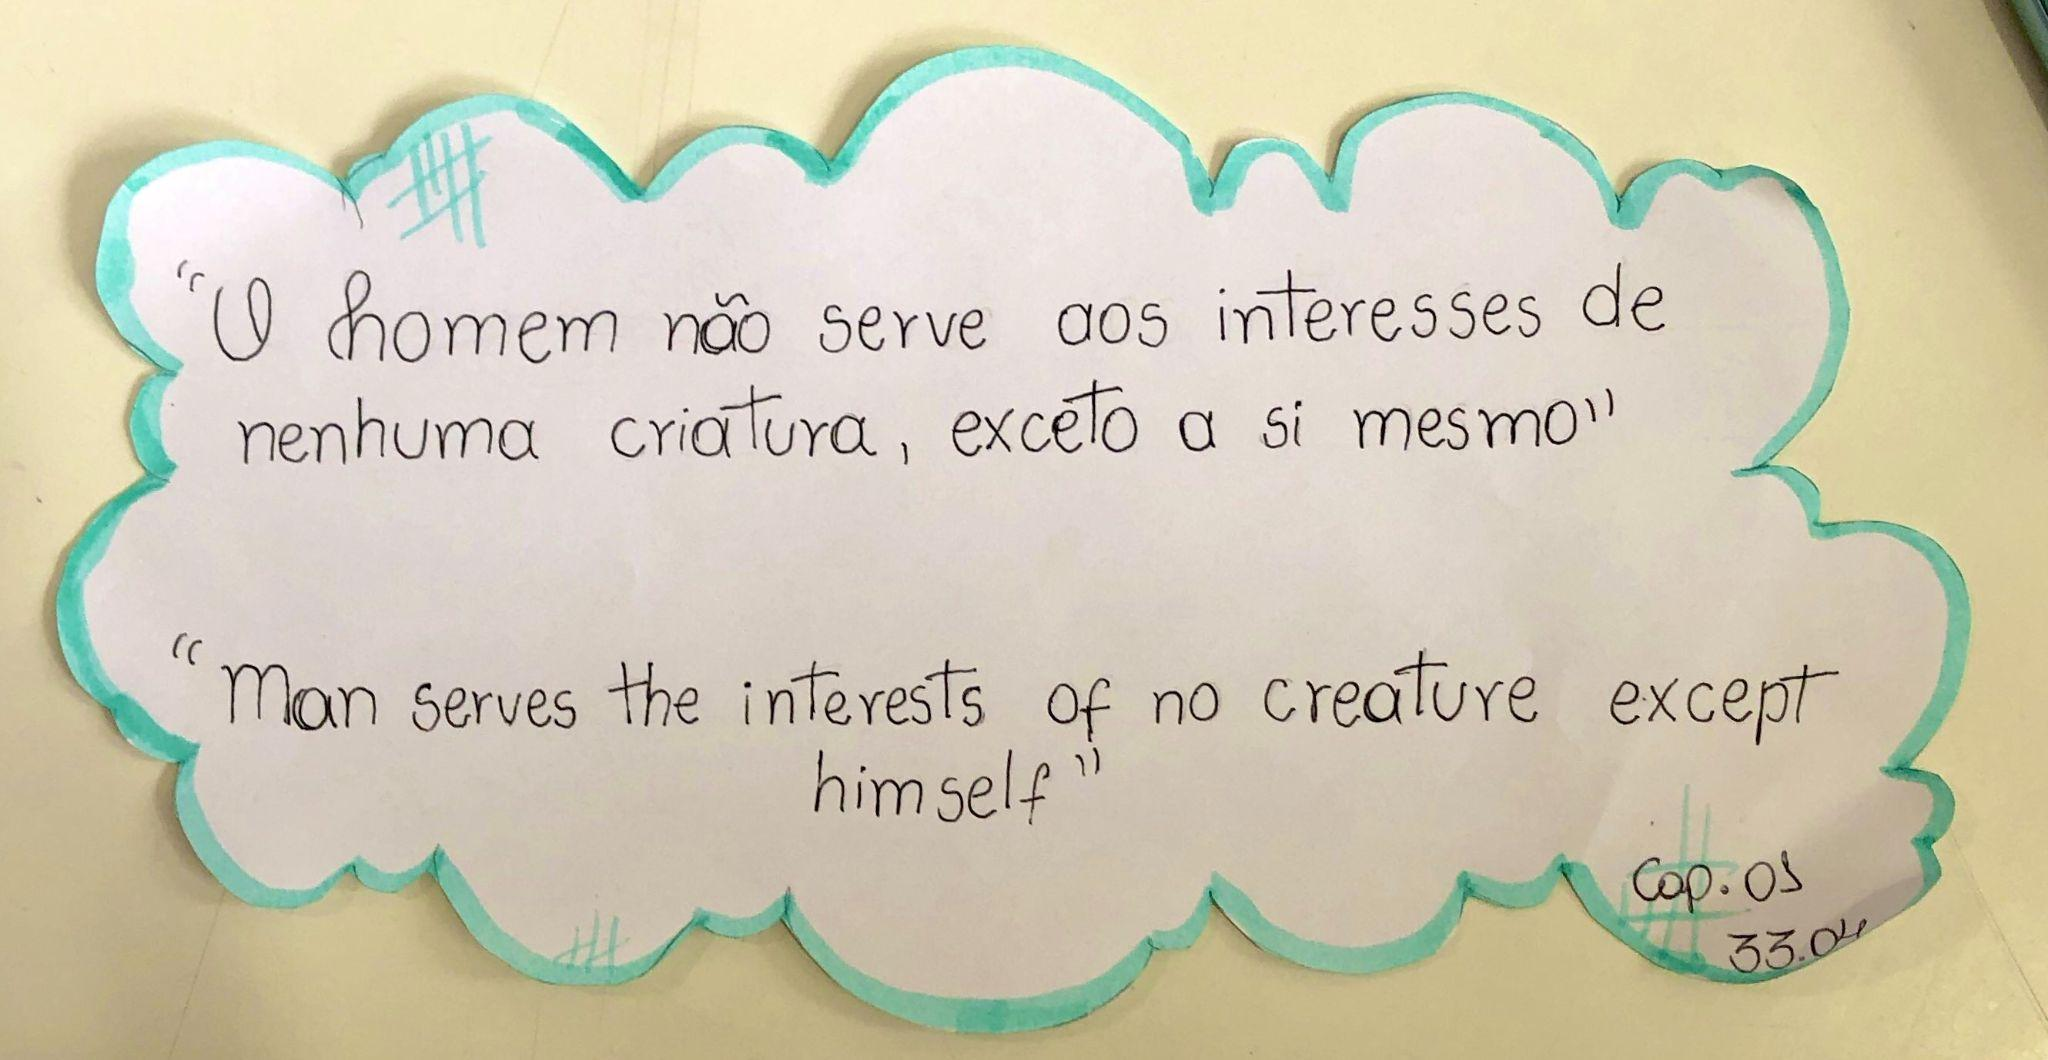 “O homem não serve aos interesses de
nenhuma criatura, exceto a si mesmo”
“Man serves the interests of no creature except
himself”
Cap. 01
33.04